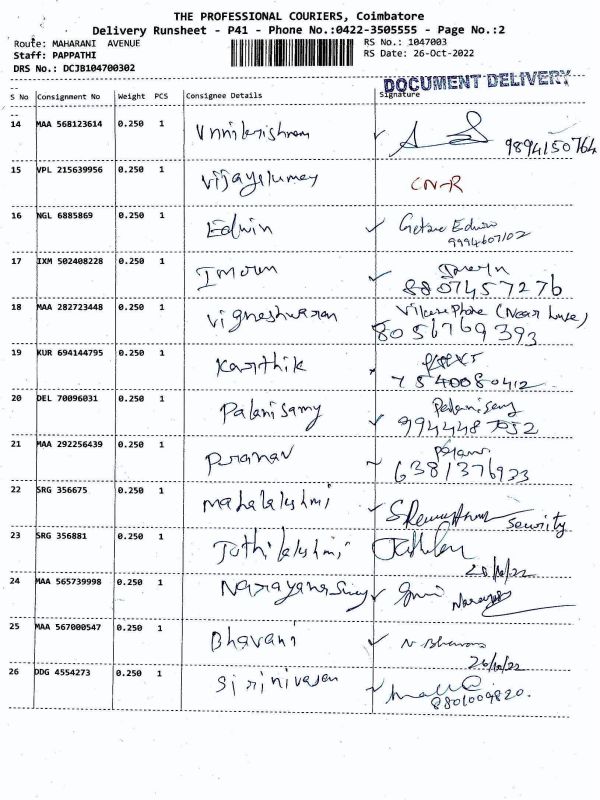 THE PROFESSIONAL COURIERS, Coimbatore
Delivery Runsheet - P41 - Phone No.:0422-3505555 - Page No.:2
Route: MAHARANI AVENUE RS No.: 1047003
Staff: PAPPATHI RS Date: 26-Oct-2022
DRS No.: DCJB104700302
DOCUMENT DELIVERY
S No Consignment No Weight PCS Consignee Details Signature
--
14 MAA 568123614 0.250 1 Unnikrishnan
9894150764
15 VPL 215639956 0.250 1 CN-R
16 NGL 6885869 0.250 1 Edwin Edwin
9994607102
17 IXM 502408228 0.250 1 Imran
8807457276
18 MAA 282723448 0.250 1 Vigneshwaran (Near
8056769393
19 KUR 694144795 0.250 1 Karthik
7540080412
20 DEL 70096031 0.250 1 Palanisamy Palanisamy
21 MAA 292256439 0.250 1 Pranav
6381376933
22 SRG 356675 0.250 1 Mahalakshmi Security
23 SRG 356881 0.250 1 Jothilakshmi
24 MAA 565739998 0.250 1 Narayanasamy
25 MAA 567000547 0.250 1 Bhavani N Bhavani
26/10/22
26 DDG 4554273 0.250 1 Sirinivasan
8801009820.